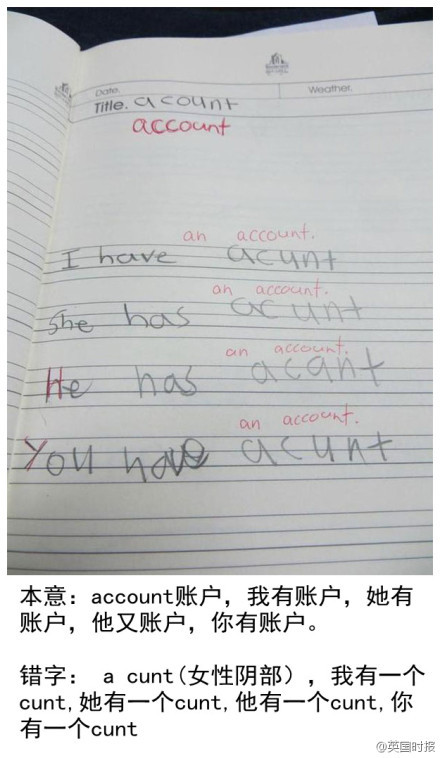 Date. Weather.
Title. acount
account
an account.
I have acunt
an account.
She has acunt
an account.
He has acant
an account.
You have acunt
本意：account账户，我有账户，她有
账户，他又账户，你有账户。
错字： a cunt(女性阴部），我有一个
cunt,她有一个cunt,他有一个cunt,你
有一个cunt
@英国时报